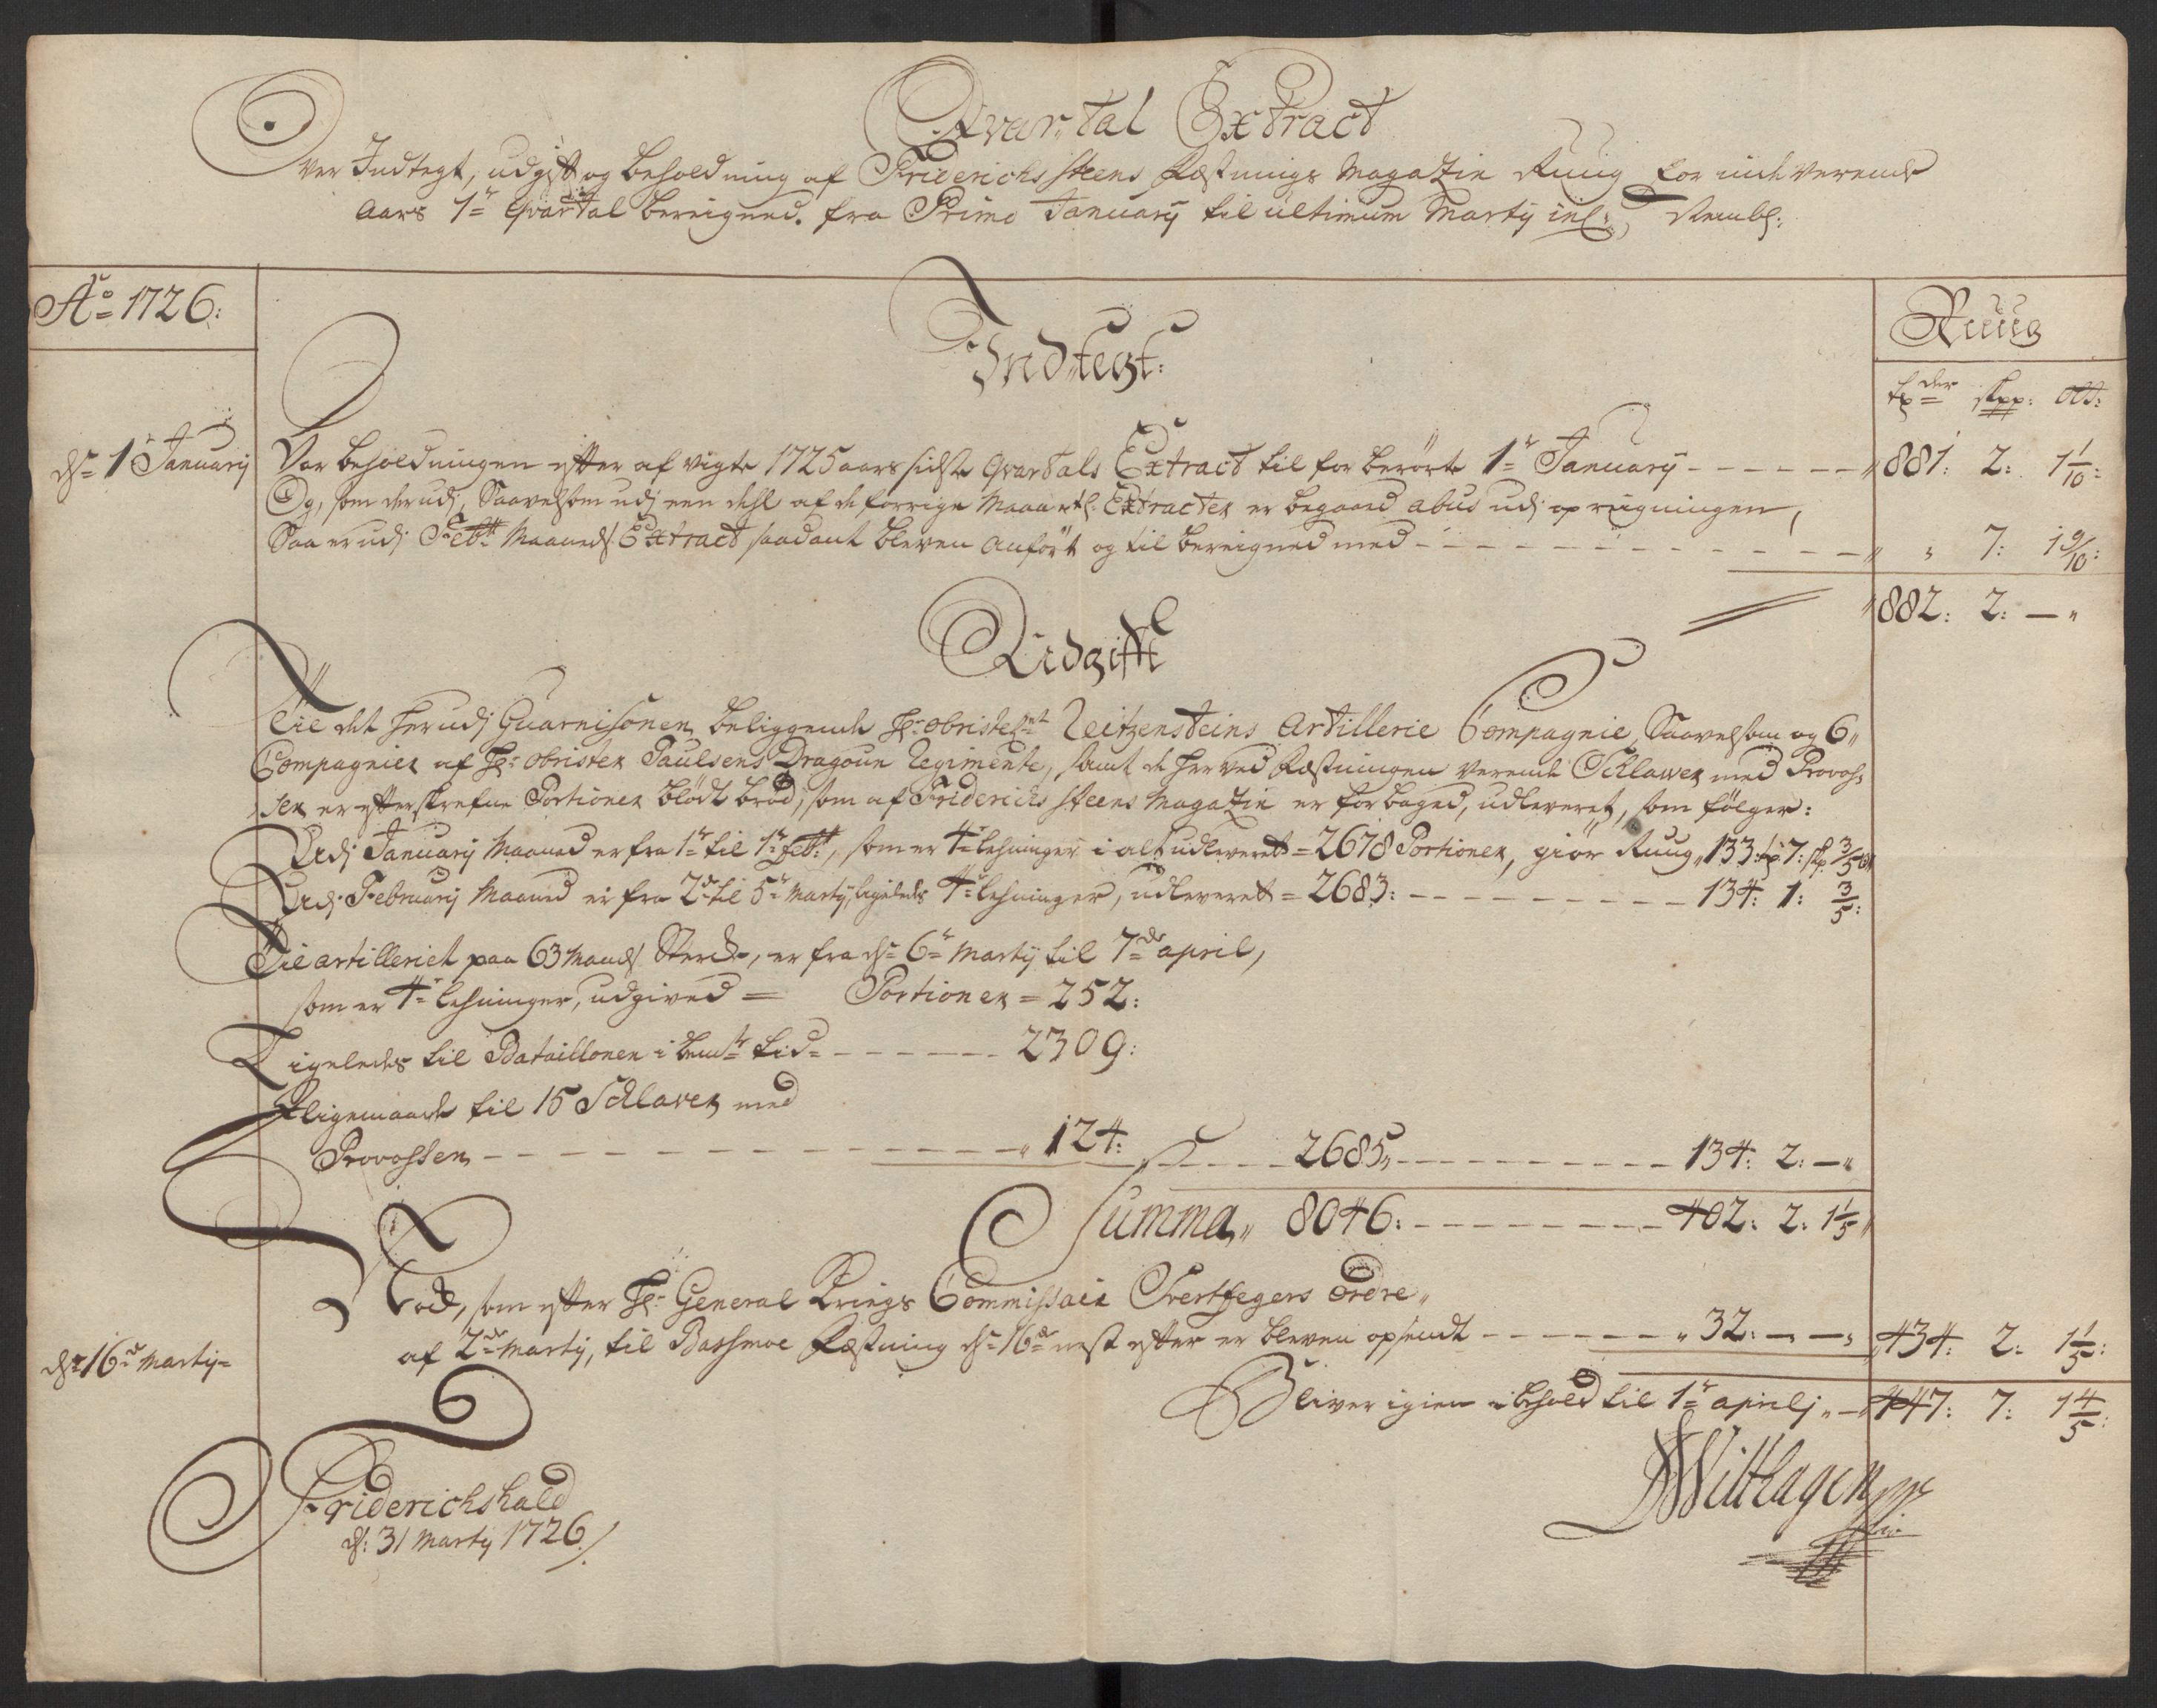 Qvartal Extract
Over Indtegt, udgift og beholdning af Friderichssteens Fæstnings Magazin Ruug for indeverende
Aars 1te Qvartal bereigned. fra Primo Januarij til ultimum Martij incl:,
Ao 1726:
Ruug
Indtegt:
tr der skpp: ott:
d: 1te Januarij Var beholdningen efter afvigte 1725 aars sidste Qvartals Extract til forberörte 1te Januarij 881: 2: 1 1/10:
Og, som derudj, Saavelsom udj een dehl af de forrige Maantl: Extracter er begaaed abus udj opreigningen,
Saa er udj Febr: Maaneds Extract saadant bleven anfört og til bereigned med " 7: 1 9/10:
882: 2: — "
Udgifft
Till det her udj Guarnisonen beliggende Hr: Obristelnt Zeitzensteins Artillerie Compagnie, Saavelsom og 6
Compagnier af Hr: Obrister Paulsens Dragoun Regimente, samt de her ved Fæstningen verende Schlawer med Provos-
sen er efterskrefne Portioner blödt bröd, som af Friderichssteens Magazin er forbaged, udleveret, som fölger:
Udj Januarij Maaned er fra 1te til 1te Febr:, som er 4re lehninger i alt udleveret = 2678 Portioner, giör Ruug 133 tr: 7: skp: 3/5 ott
Udj Februarij Maaned er fra 2de til 5te Martij, ligeledes 4re lehninger, udleveret = 2683: 134: 1: 3/5:
Til artilleriet paa 63 Mands Sterche, er fra d: 6te Martij til 7de april,
som er 4re lehninger, udgived = Portioner = 252:
Ligeledes til Bataillonen i bemte tid 2309:
Ligemaade til 15 Schlaver med
Provossen 124: 2685 134: 2: — "
Summa 8046: 402: 2: 1 1/5
Nock, som efter Hr: General Krigs Commissair Svertfegers ordre
d: 16de Martij af 2de Martij, til Basmoe Fæstning d: 16de nest efter er bleven opsendt 32: — — 434: 2: 1 1/5:
Bliver igien i behold til 1te aprilj 447: 7: 1 4/5:
Friderichshald
d: 31 Martij 1726
Witthagen